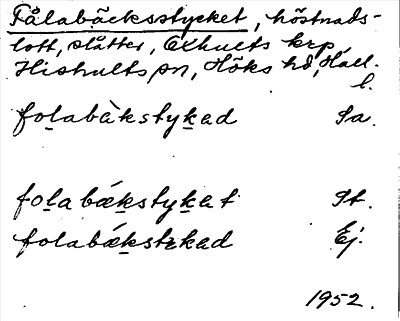 Fålabäcksstycket, höstnads-
lott, slåtter, Exhults krp,
Hishults sn, Höks hd, Hall.
l.
folabàkstykad Sa.
folabǽkstykat St.
folabǽkstɛkad Ej.
1952.